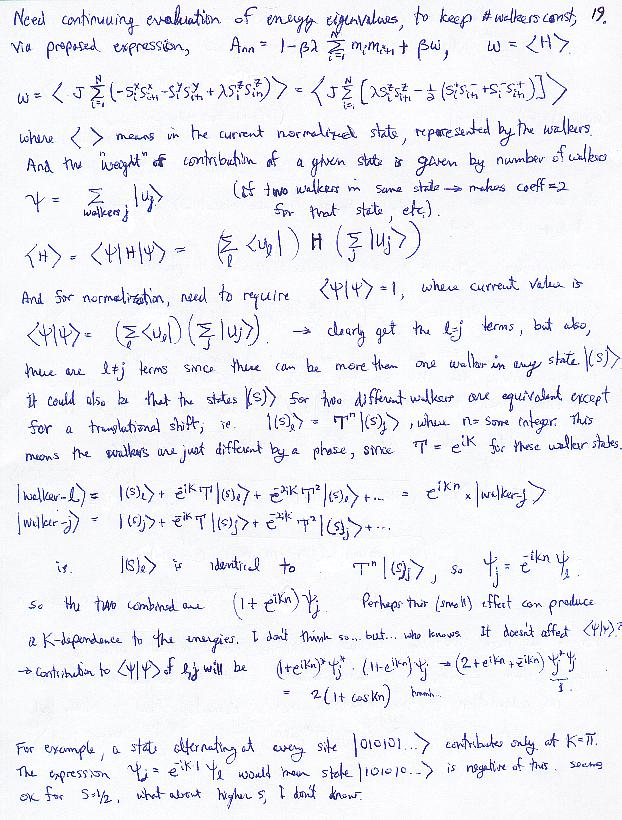 Need continuing evaluation of energy eigenvalues, to keep #walkers const, 19.
via proposed expression, Ann = 1-βλ Σ_{i=1}^{N} m_i m_{i+1} + βω, ω = <H>.
ω = < J Σ_{i=1}^{N} (-S_i^x S_{i+1}^x - S_i^y S_{i+1}^y + λS_i^z S_{i+1}^z) > = < J Σ_{i=1}^{N} [λS_i^z S_{i+1}^z - ½ (S_i^+ S_{i+1}^- + S_i^- S_{i+1}^+)] >
where < > means in the current normalized state, represented by the walkers.
And the "weight" of contribution of a given state is given by number of walkers
Ψ = Σ_{walkers j} |u_j> (if two walkers in same state → makes coeff=2
for that state, etc.).
<H> = <Ψ|H|Ψ> = (Σ_l <u_l|) H (Σ_j |u_j>)
And for normalization, need to require <Ψ|Ψ> = 1, where current value is
<Ψ|Ψ> = (Σ_l <u_l|) (Σ_j |u_j>). → clearly get the l=j terms, but also,
there are l≠j terms since there can be more than one walker in any state |(S)>
It could also be that the states |(S)> for two different walkers are equivalent except
for a translational shift, ie. |(S)_l> = T^n |(S)_j>, where n= some integer. This
means the walkers are just different by a phase, since T = e^{iK} for these walker states.
|walker-l> = |(S)_l> + e^{-iK} T |(S)_l> + e^{-2iK} T² |(S)_l> + ... = e^{iKn} × |walker-j>
|walker-j> = |(S)_j> + e^{-iK} T |(S)_j> + e^{-2iK} T² |(S)_j> + ...
ie. |(S)_l> is identical to T^n |(S)_j>, so Ψ_j = e^{-iKn} Ψ_l.
so the two combined are (1+ e^{iKn}) Ψ_j. Perhaps this (small) effect can produce
a K-dependence to the energies. I don't think so... but... who knows. It doesn't affect <Ψ|Ψ>?
→ contribution to <Ψ|Ψ> of l,j will be (1+e^{iKn})* Ψ_j* · (1+e^{iKn}) Ψ_j → (2+e^{iKn}+e^{-iKn}) Ψ_j* Ψ_j
= 2(1+ cos Kn) hmmh.. 1.
For example, a state alternating at every site |010101...> contributes only at K=π.
The expression Ψ_j = e^{-iK·1} Ψ_l would mean state |101010...> is negative of this. seems
ok for S=1/2, what about higher s, I don't know.